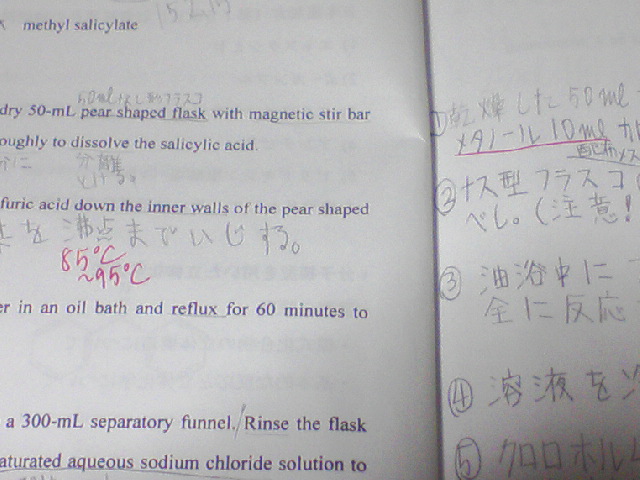 methyl salicylate
dry 50-mL pear shaped flask with magnetic stir bar
oughly to dissolve the salicylic acid.
furic acid down the inner walls of the pear shaped
を 沸点まで
85℃
~95℃
er in an oil bath and reflux for 60 minutes to
a 300-mL separatory funnel. Rinse the flask
aturated aqueous sodium chloride solution to
① 乾燥した50ml
メタノール 10ml
② ナス型フラスコ
べし。(注意!
③ 油浴中に
全に反応
④ 溶液を
⑤ クロロホルム